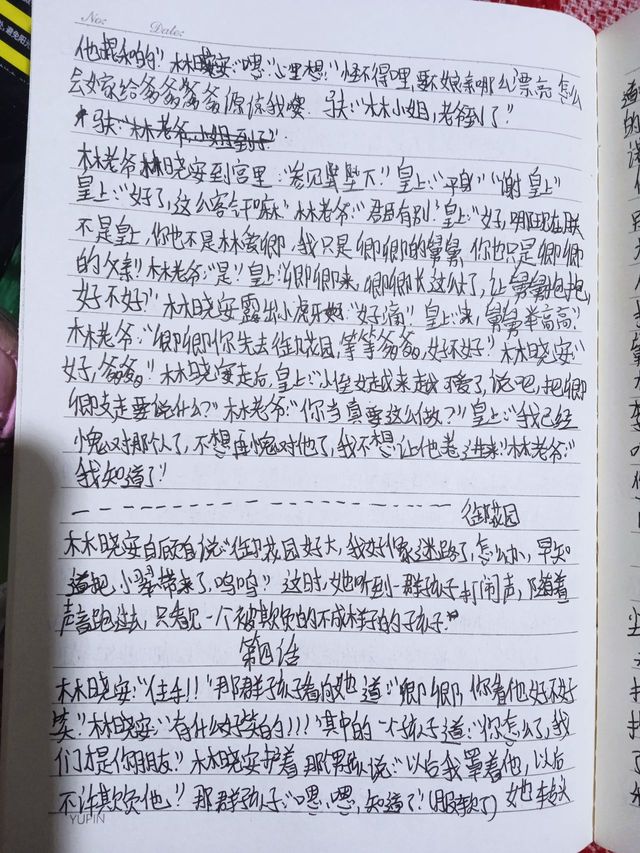 No:
Date:
他提和的" 林晓安:"嗯" 心里想:"怪不得哩,那么娘亲哪么漂亮 怎么
会嫁给爹爹 爹爹 原 我噢. 马夫:"林小姐,老爷到了"
马夫:"林老爷,小姐到了"
林老爷 林晓安到宫里:"参见陛下" 皇上:"平身" "谢皇上"
皇上:"好了,这么客气干嘛" 林老爷:"君臣有别" 皇上:"好,哪现在朕
不是皇上,你也不是林爱卿,我只是卿卿的舅舅,你也只是卿卿
的父亲" 林老爷:"是" 皇上:"卿卿来,卿卿长这么大了,让舅舅抱抱,
好不好?" 林晓安露出小虎牙 "好滴" 皇上:"来,舅舅举高高"
林老爷:"卿卿你先去御花园,等等爹爹,好不好" 林晓安:"
好,爹爹" 林晓安走后,皇上:"小侄女越来越可爱了,说吧,把卿
卿支走要说什么?" 林老爷:"你当真要这么做?" 皇上:"我已经
愧对那个人了,不想再愧对他了,我不想让他卷进来" 林老爷:"
我知道了"
御花园
林晓安自顾自说:"御花园好大,我好像迷路了,怎么办,早知
道把小翠带来了,呜呜" 这时,她听到一群孩子打闹声,随着
声音跑过去,只看见一个被欺负的不成样子的子孩子"
第四话
林晓安:"住手!!" 那群孩子看向她 道:"卿卿,你看他好不好
笑" 林晓安:"有什么好笑的!!!" 其中的一个孩子道:"你怎么了,我
们才是你朋友" 林晓安护着那个男孩说:"以后我罩着他,以后
不许欺负他!" 那群孩子:"嗯,嗯,知道了"(服软了) 她转头
YUPIN